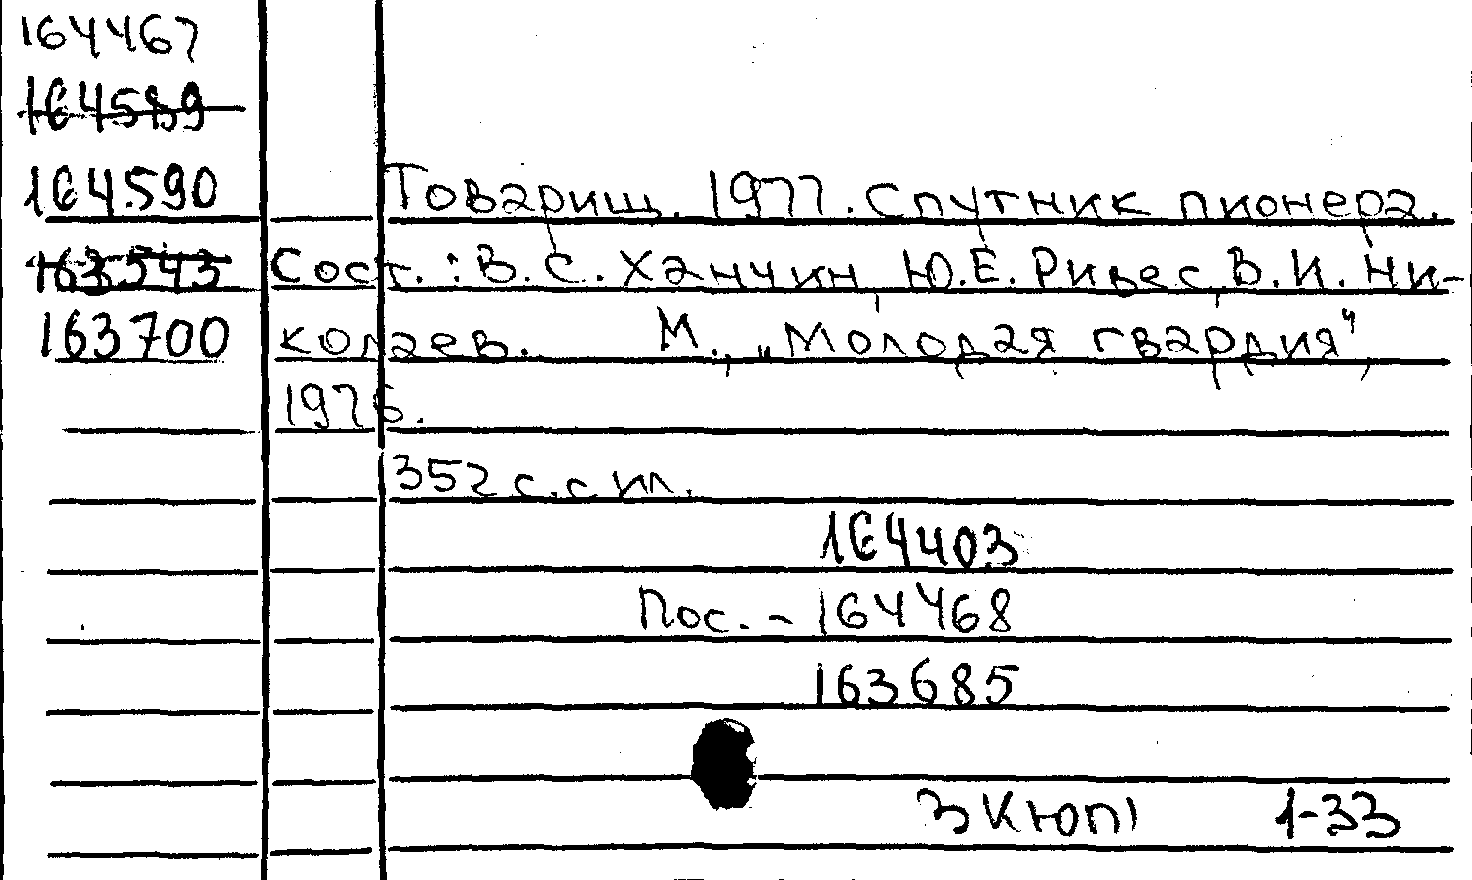 164467
164589
164590 Товарищ. 1977. Спутник пионера.
163543 Сост.: В.С. Ханчин, Ю.Е. Ривес, В.И. Ни-
163700 колаев. М., „Молодая гвардия",
1976.
352 с. с ил.
164403
Пос. - 164468
163685
3КЮП1 1-33